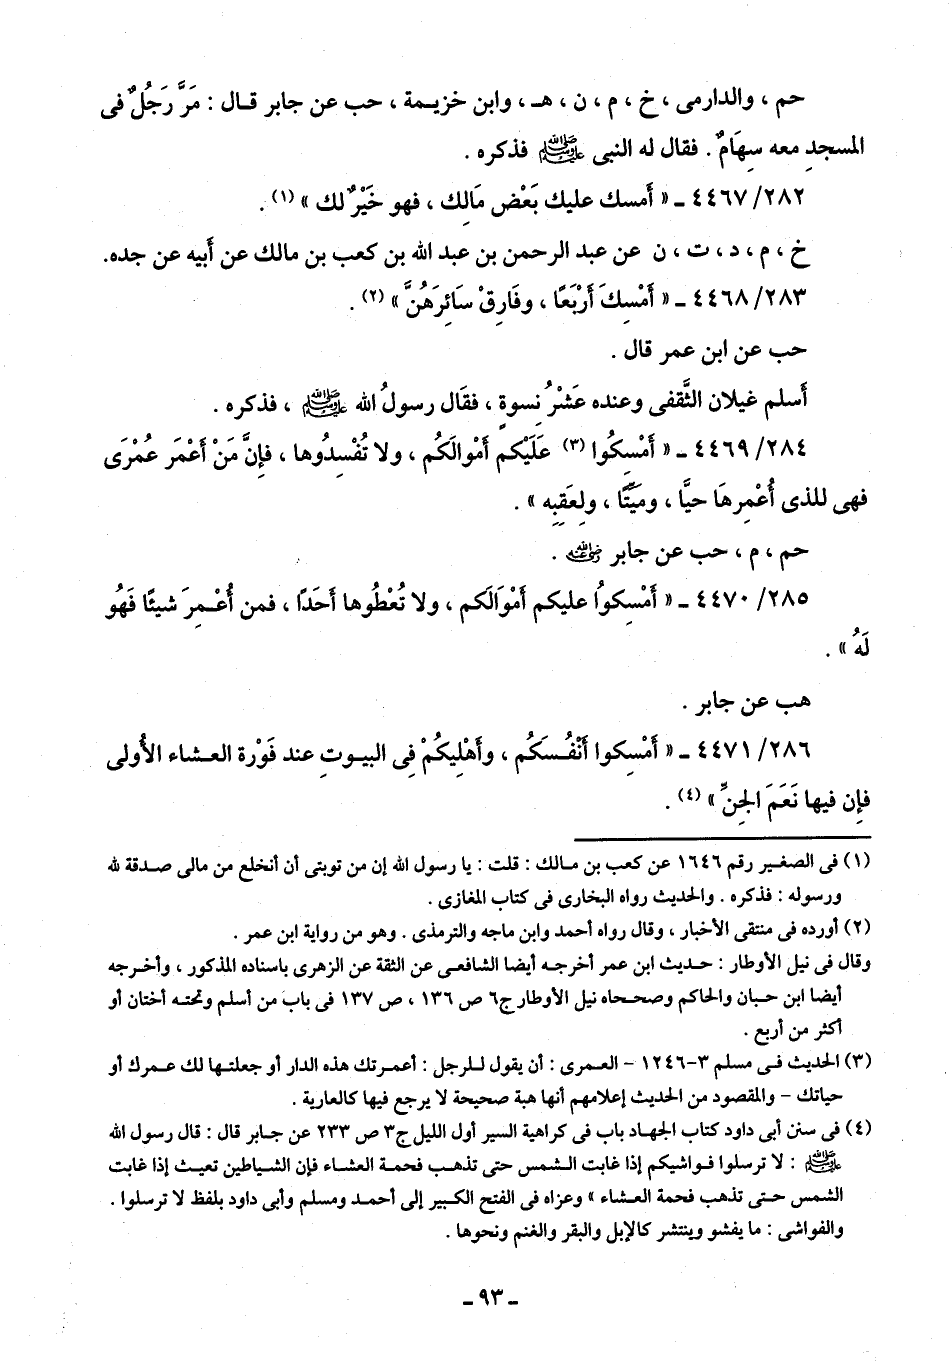 حم ، والدارمى ، خ ، م ، ن ، هـ ، وابن خزيمة ، حب عن جابر قال : مَرَّ رَجُلٌ فى
المسجدِ معه سِهَامٌ . فقال له النبى ﷺ فذكره .
٢٨٢/ ٤٤٦٧ ـ « أَمسك عليك بَعْض مَالِك ، فهو خَيْرٌ لك » (١) .
خ ، م ، د ، ت ، ن عن عبد الرحمن بن عبد الله بن كعب بن مالك عن أَبيه عن جده.
٢٨٣/ ٤٤٦٨ ـ « أَمْسِكَ أَرْبَعًا ، وفَارِقْ سَائِرَهُنَّ » (٢) .
حب عن ابن عمر قال .
أَسلم غيلان الثَّقفى وعنده عَشْرُ نِسوةٍ ، فقَال رسولُ الله ﷺ ، فذكره .
٢٨٤/ ٤٤٦٩ ـ « أَمْسِكُوا (٣) عَلَيْكم أَمْوالَكُم ، ولا تُفْسِدُوها ، فإِنَّ مَنْ أَعْمَر عُمْرَى
فهى للذى أُعْمِرهَا حيَّا ، ومَيِّتًا ، ولِعَقِبِه » .
حم ، م ، حب عن جابر رضي الله عنه .
٢٨٥/ ٤٤٧٠ ـ « أَمْسِكواُ عليكم أَمْوَالَكم ، ولا تُعْطُوها أَحَدًا ، فمن أُعْـمِرَ شيئًا فَهُو
لَهُ » .
هب عن جابر .
٢٨٦/ ٤٤٧١ ـ « أَمْسِكوا أَنْفُـسَكُم ، وأَهْلِيكُمْ فِى البيـوتِ عند فَوْرة العـشاء الأُولى
فإِن فيها نَعَمَ الجِنِّ » (٤) .
(١) فى الصغـير رقم ١٦٤٦ عن كعب بن مـالك : قلت : يا رسول الله إن من توبتى أن أنخلع من مالى صـدقة لله
ورسوله : فذكره . والحديث رواه البخارى فى كتاب المغازى .
(٢) أورده فى منتقى الأخبار ، وقال رواه أحمد وابن ماجه والترمذى . وهو من رواية ابن عمر .
وقال فى نيل الأوطار : حـديث ابن عمر أخرجـه أيضا الشافعـى عن الثقة عن الزهرى باسناده المذكور ، وأخـرجه
أيضا ابن حبان والحاكم وصححاه نيل الأوطار ج٦ ص ١٣٦ ، ص ١٣٧ فى باب من أسلم وتحتـه أختان أو
أكثر من أربع .
(٣) الحديث فـى مسلم ٣-١٢٤٦ - العـمرى : أن يقول للـرجل : أعمـرتك هذه الدار أو جعلتـها لك عـمرك أو
حياتك - والمقصود من الحديث إعلامهم أنها هبة صحيحة لا يرجع فيها كالعارية .
(٤) فى سنن أبى داود كتاب الجهـاد باب فى كراهية السير أول الليل ج٣ ص ٢٣٣ عن جـابر قال : قال رسول الله
ﷺ : لا ترسلوا فـواشيكم إذا غابت الـشمس حتى تذهـب فحمة العشاء فإن الشـياطين تعيـث إذا غابت
الشمس حـتى تذهب فحمة العـشاء » وعزاه فى الفتح الكبير إلى أحمـد ومسلم وأبى داود بلفظ لا ترسلوا .
والفواشى : ما يفشو وينتشر كالإبل والبقر والغنم ونحوها .
ـ ٩٣ ـ